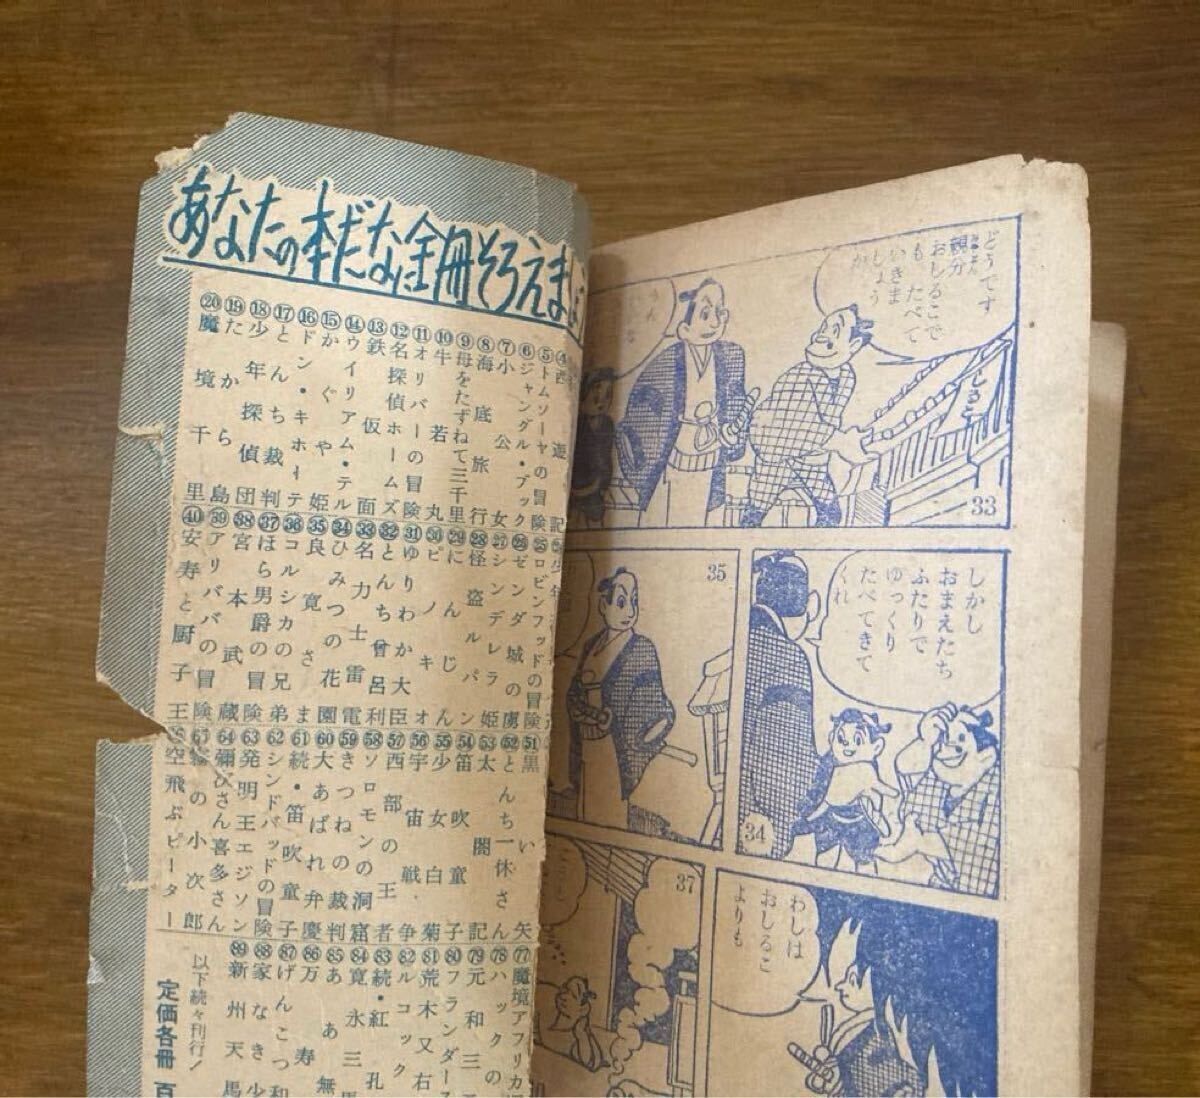 あなたの本だなに全冊そろえましょう
⑤トムソーヤの冒険
⑥ジャングル・ブック
⑦小公女
⑧海底旅行
⑨母をたずねて三千里
⑩牛若丸
⑪オリバーの冒険
⑫名探偵ホームズ
⑬鉄仮面
⑭ウイリアム・テル
⑮かぐや姫
⑯ドン・キホーテ
⑰とんち裁判
⑱少年探偵団
⑲たから島
⑳魔境千里
㉕ロビンフッドの冒険
㉖ゼンダ城の虜
㉗シンデレラ姫
㉘怪盗ルパン
㉙にんじん
㉚ピノキオ
㉛ゆりわか大臣
㉜とんち曾呂利
㉝名力士雷電
㉞ひみつの花園
㉟良寛さま
㊱コルシカの兄弟
㊲ほら男爵の冒険
㊳宮本武蔵
㊴アリババの冒険
㊵安寿と厨子王
51黒い矢
52とんち一休さん
53太閤記
54笛吹童子
55少女白菊
56宇宙戦争
57西部の王者
58ソロモンの洞窟
59きつねの裁判
60大あばれ弁慶
61続・笛吹童子
62シンドバッドの冒険
63発明王エジソン
64彌次さん喜多さん
の小次郎
空飛ぶピーター
77魔境アフリカ
78ハックの
79元和三
80フランダース
81荒木又右
82ルコック
83続・紅孔
84寛永三馬
85ああ無
86万寿
87げんこつ和
88家なき少
89新州天馬
以下続々刊行！
定価各冊 百
どうです
親分
おしるこで
も たべて
いきま
しょう
か
しるこ
33
しかし
おまえたち
ふたりで
ゆっくり
たべてきて
くれ
34
35
わしは
おしるこ
よりも
37